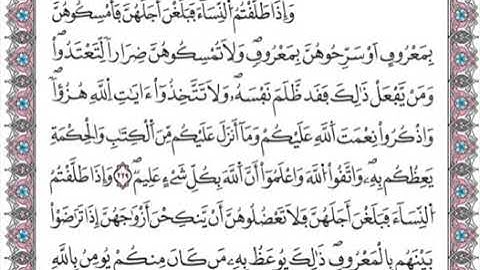 وَإِذَا طَلَّقْتُمُ النِّسَآءَ فَبَلَغْنَ أَجَلَهُنَّ فَأَمْسِكُوهُنَّ
بِمَعْرُوفٍ اَوْ سَرِّحُوهُنَّ بِمَعْرُوفٍ وَلَا تُمْسِكُوهُنَّ ضِرَاراً لِّتَعْتَدُواْ
وَمَنْ يَّفْعَلْ ذَٰلِكَ فَقَد ظَّلَمَ نَفْسَهُۥ وَلَا تَتَّخِذُوٓاْ ءَايَٰتِ اِللَّهِ هُزُؤاً
وَاذْكُرُواْ نِعْمَتَ اَللَّهِ عَلَيْكُمْ وَمَآ أَنزَلَ عَلَيْكُم مِّنَ اَلْكِتَٰبِ وَالْحِكْمَةِ
يَعِظُكُم بِهِۦ وَاتَّقُواْ اُللَّهَ وَاعْلَمُوٓاْ أَنَّ اَللَّهَ بِكُلِّ شَےْءٍ عَلِيمٌ ۝٢٢٩ وَإِذَا طَلَّقْتُمُ
اُلنِّسَآءَ فَبَلَغْنَ أَجَلَهُنَّ فَلَا تَعْضُلُوهُنَّ أَنْ يَّنكِحْنَ أَزْوَٰجَهُنَّ إِذَا تَرَٰضَوْاْ
بَيْنَهُم بِالْمَعْرُوفِ ذَٰلِكَ يُوعَظُ بِهِۦ مَن كَانَ مِنكُمْ يُومِنُ بِاللَّهِ